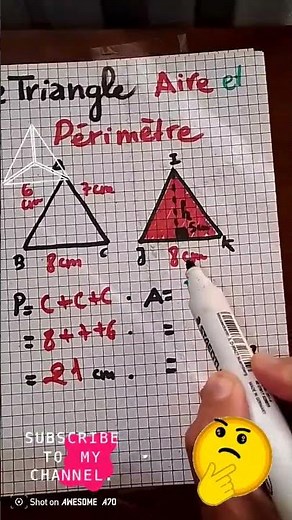 e Triangle Aire et
Périmètre
A
I
6
cm
7cm
h
5cm
B
8cm
C
J
8cm
K
P= C+C+C. A=
= 8+7+6. =
= 21 cm. =
SUBSCRIBE
TO MY
CHANNEL.
Shot on AWESOME A70